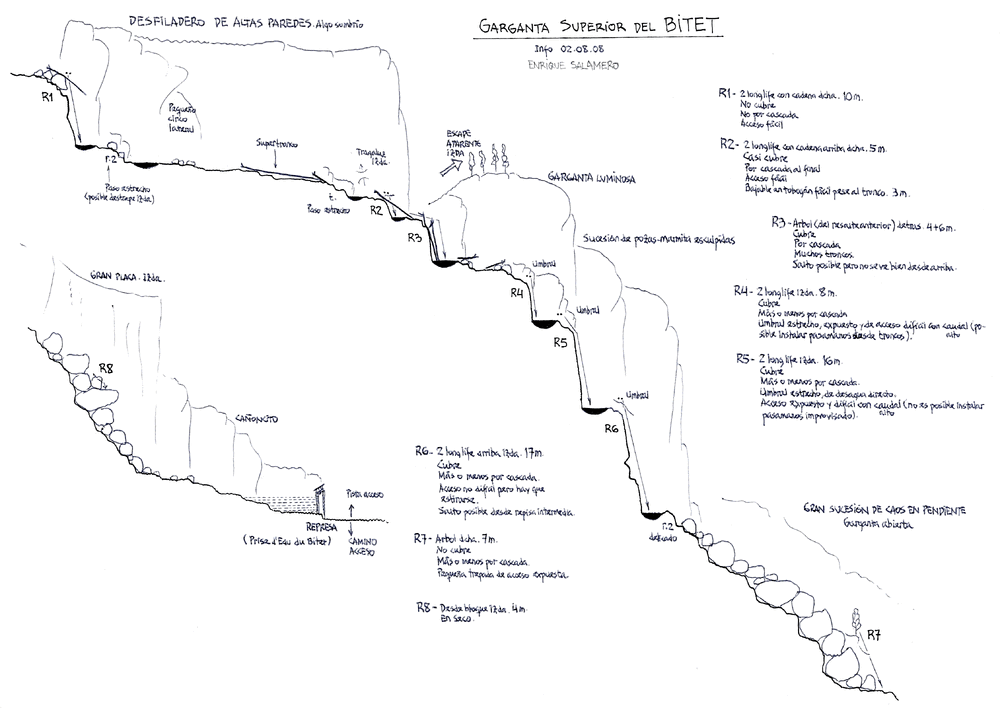 DESFILADERO DE ALTAS PAREDES. Algo sombrío
GARGANTA SUPERIOR DEL BITET
Info 02.08.08
ENRIQUE SALAMERO
R1
Pequeño
circo
lateral
r.2
Paso estrecho
(posible destrepe izda)
Supertronco
Tragaluz
izda.
t.
Paso estrecho
R2
R3
ESCAPE
APARENTE
IZDA
GARGANTA LUMINOSA
Sucesión de pozas-marmita esculpidas
Umbral
R4
Umbral
R5
Umbral
R6
r.2
delicado
GRAN SUCESIÓN DE CAOS EN PENDIENTE
Garganta abierta
R7
GRAN PLACA. Izda.
R8
CAÑONCITO
Pista acceso
REPRESA
(Prise d'Eau du Bitet)
CAMINO
ACCESO
R1- 2 longlife con cadena dcha. 10 m.
No cubre
No por cascada
Acceso fácil
R2- 2 longlife con cadena arriba dcha. 5 m.
Casi cubre
Por cascada al final
Acceso fácil
Bajable en tobogán fácil pese al tronco. 3 m.
R3- Arbol (del resalte anterior) detras. 4+6 m.
Cubre
Por cascada
Muchos troncos.
Salto posible pero no se ve bien desde arriba.
R4- 2 longlife izda. 8 m.
Cubre
Más o menos por cascada
Umbral estrecho, expuesto y de acceso difícil con caudal (po-
alto
sible instalar pasamanos desde troncos).
R5- 2 longlife izda. 16 m.
Cubre
Más o menos por cascada.
Umbral estrecho, de desagüe directo.
Acceso expuesto y difícil con caudal (no es posible instalar
alto
pasamanos improvisado).
R6- 2 longlife arriba izda. 17 m.
Cubre
Más o menos por cascada.
Acceso no difícil pero hay que
estirarse.
Salto posible desde repisa intermedia.
R7- Arbol dcha. 7 m.
No cubre
Más o menos por cascada.
Pequeña trepada de acceso expuesta.
R8- Desde bloque izda. 4 m.
En seco.